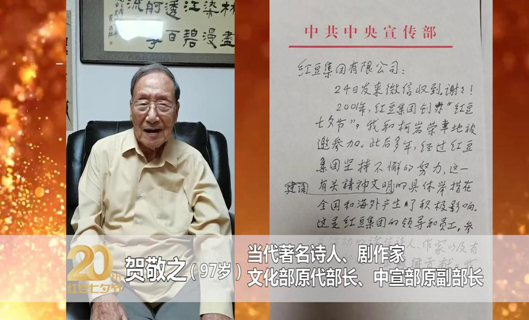 中共中央宣传部
红豆集团有限公司:
24日发来微信收到,谢谢!
2001年,红豆集团创办“红豆
七夕节”,我和柯岩荣幸地被
邀参加。此后多年,经过红豆
集团坚持不懈的努力,这一
有关精神文明的具体举措在
全国和海外产生了积极影响。
这是红豆集团的领导和员工,参
20
红豆七夕节
贺敬之(97岁)
当代著名诗人、剧作家
文化部原代部长、中宣部原副部长